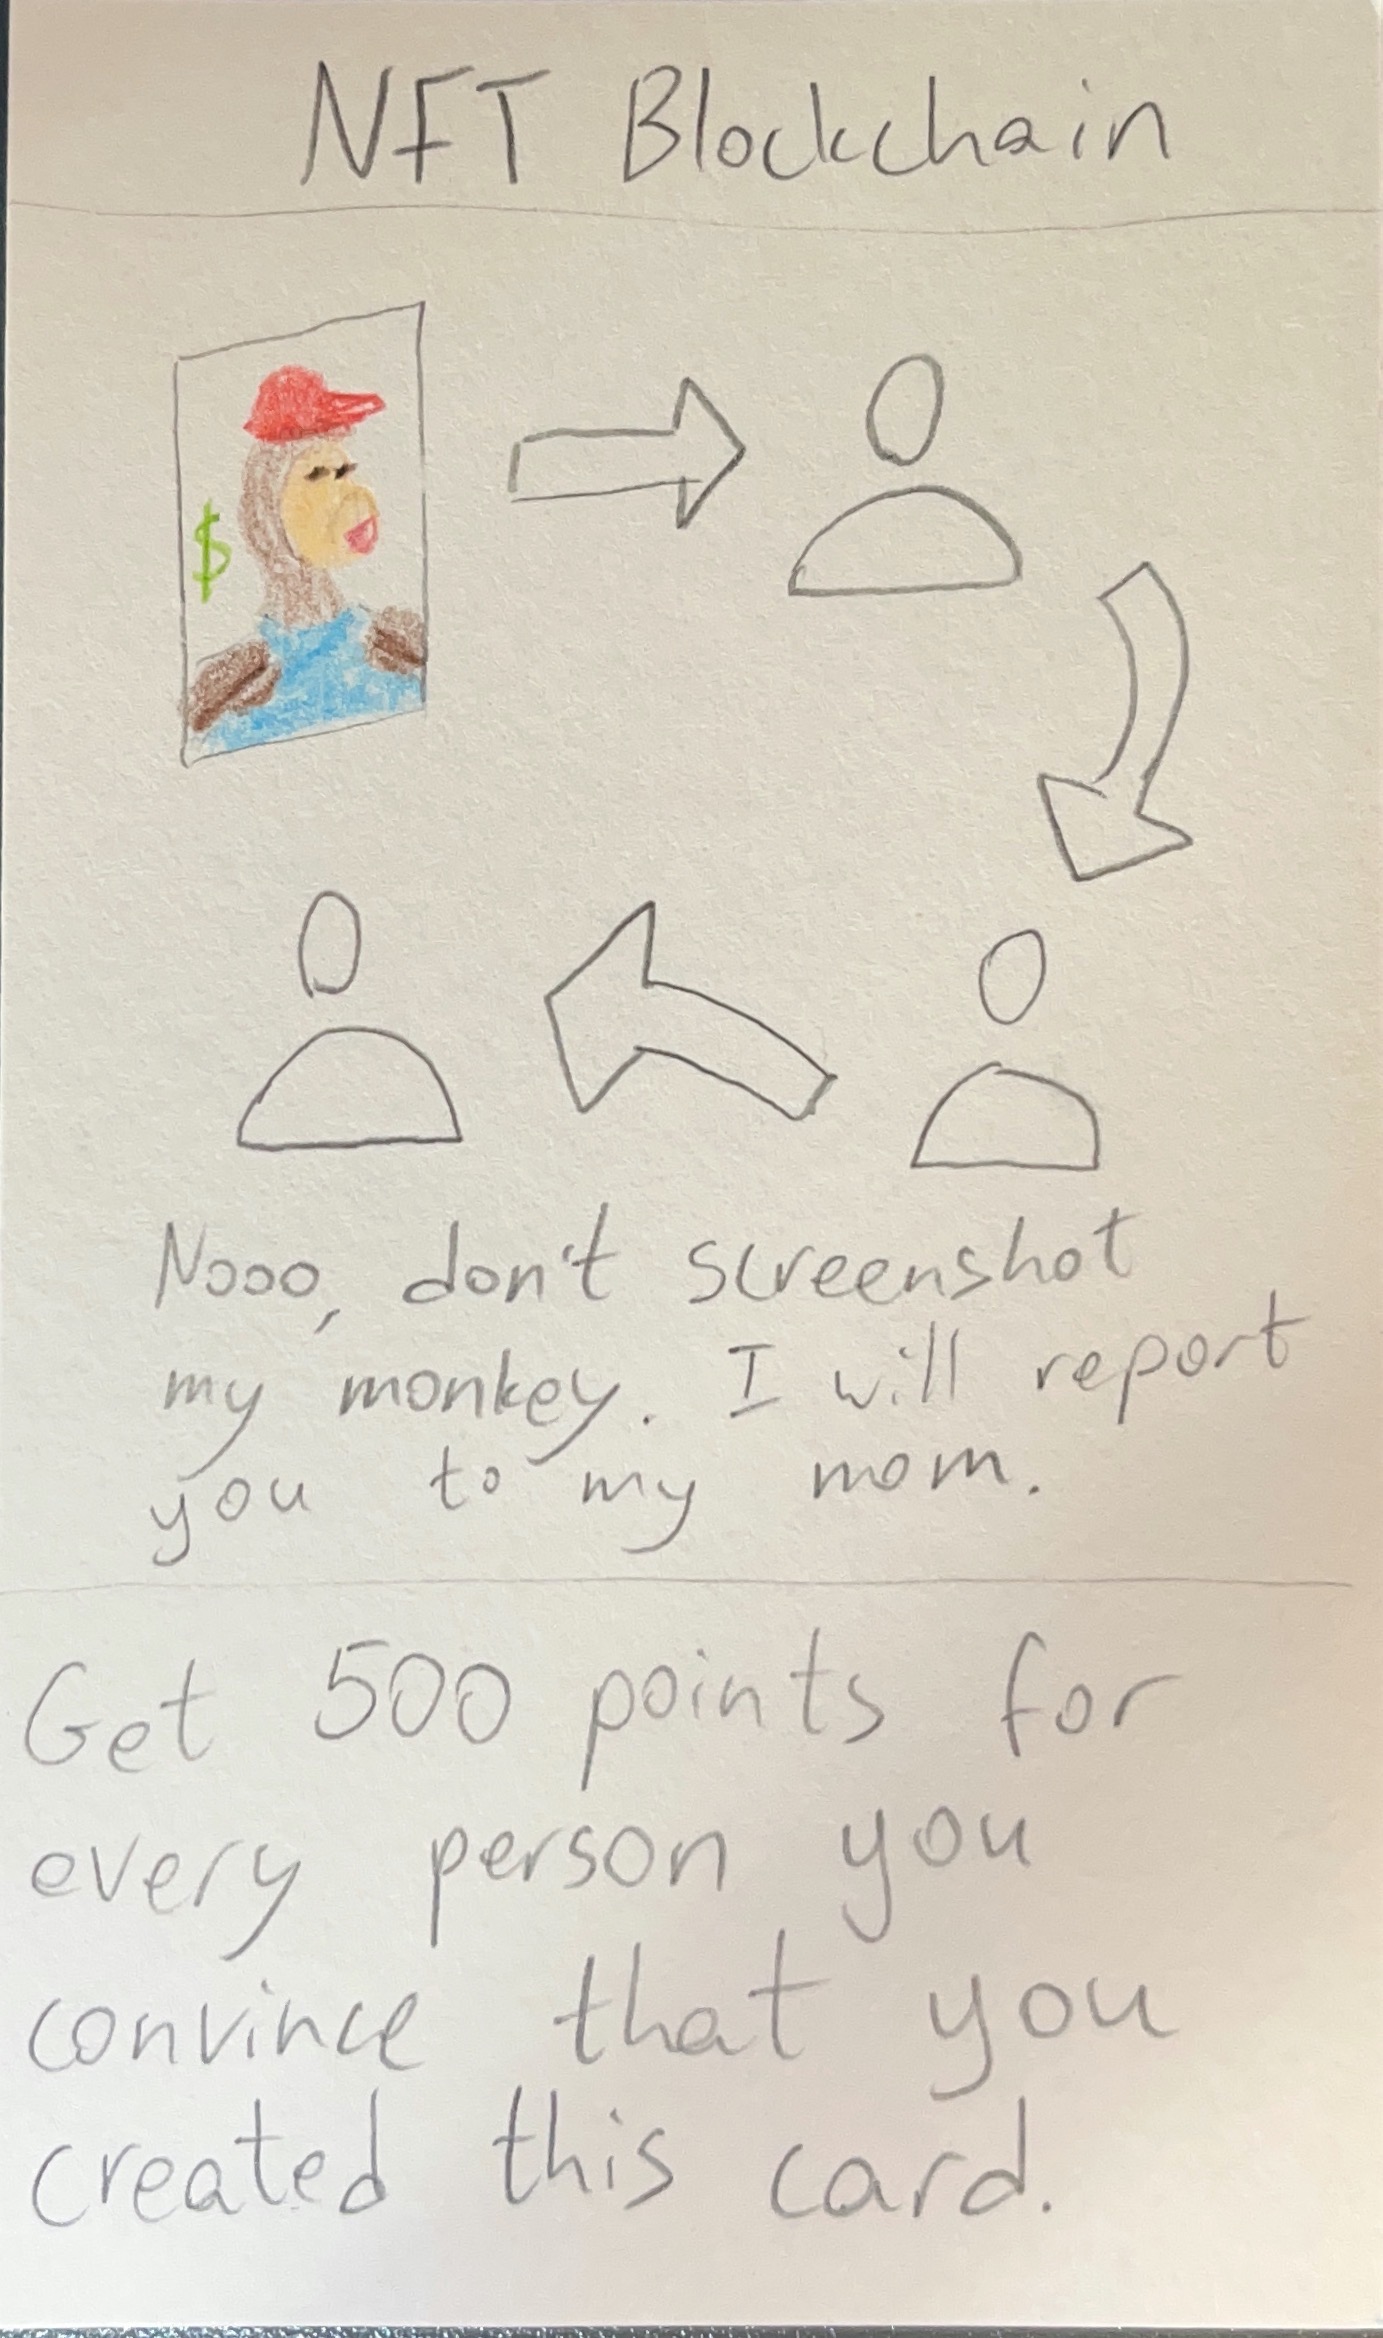 NFT Blockchain
$
Nooo, don't screenshot
my monkey. I will report
you to my mom.
Get 500 points for
every person you
convince that you
created this card.